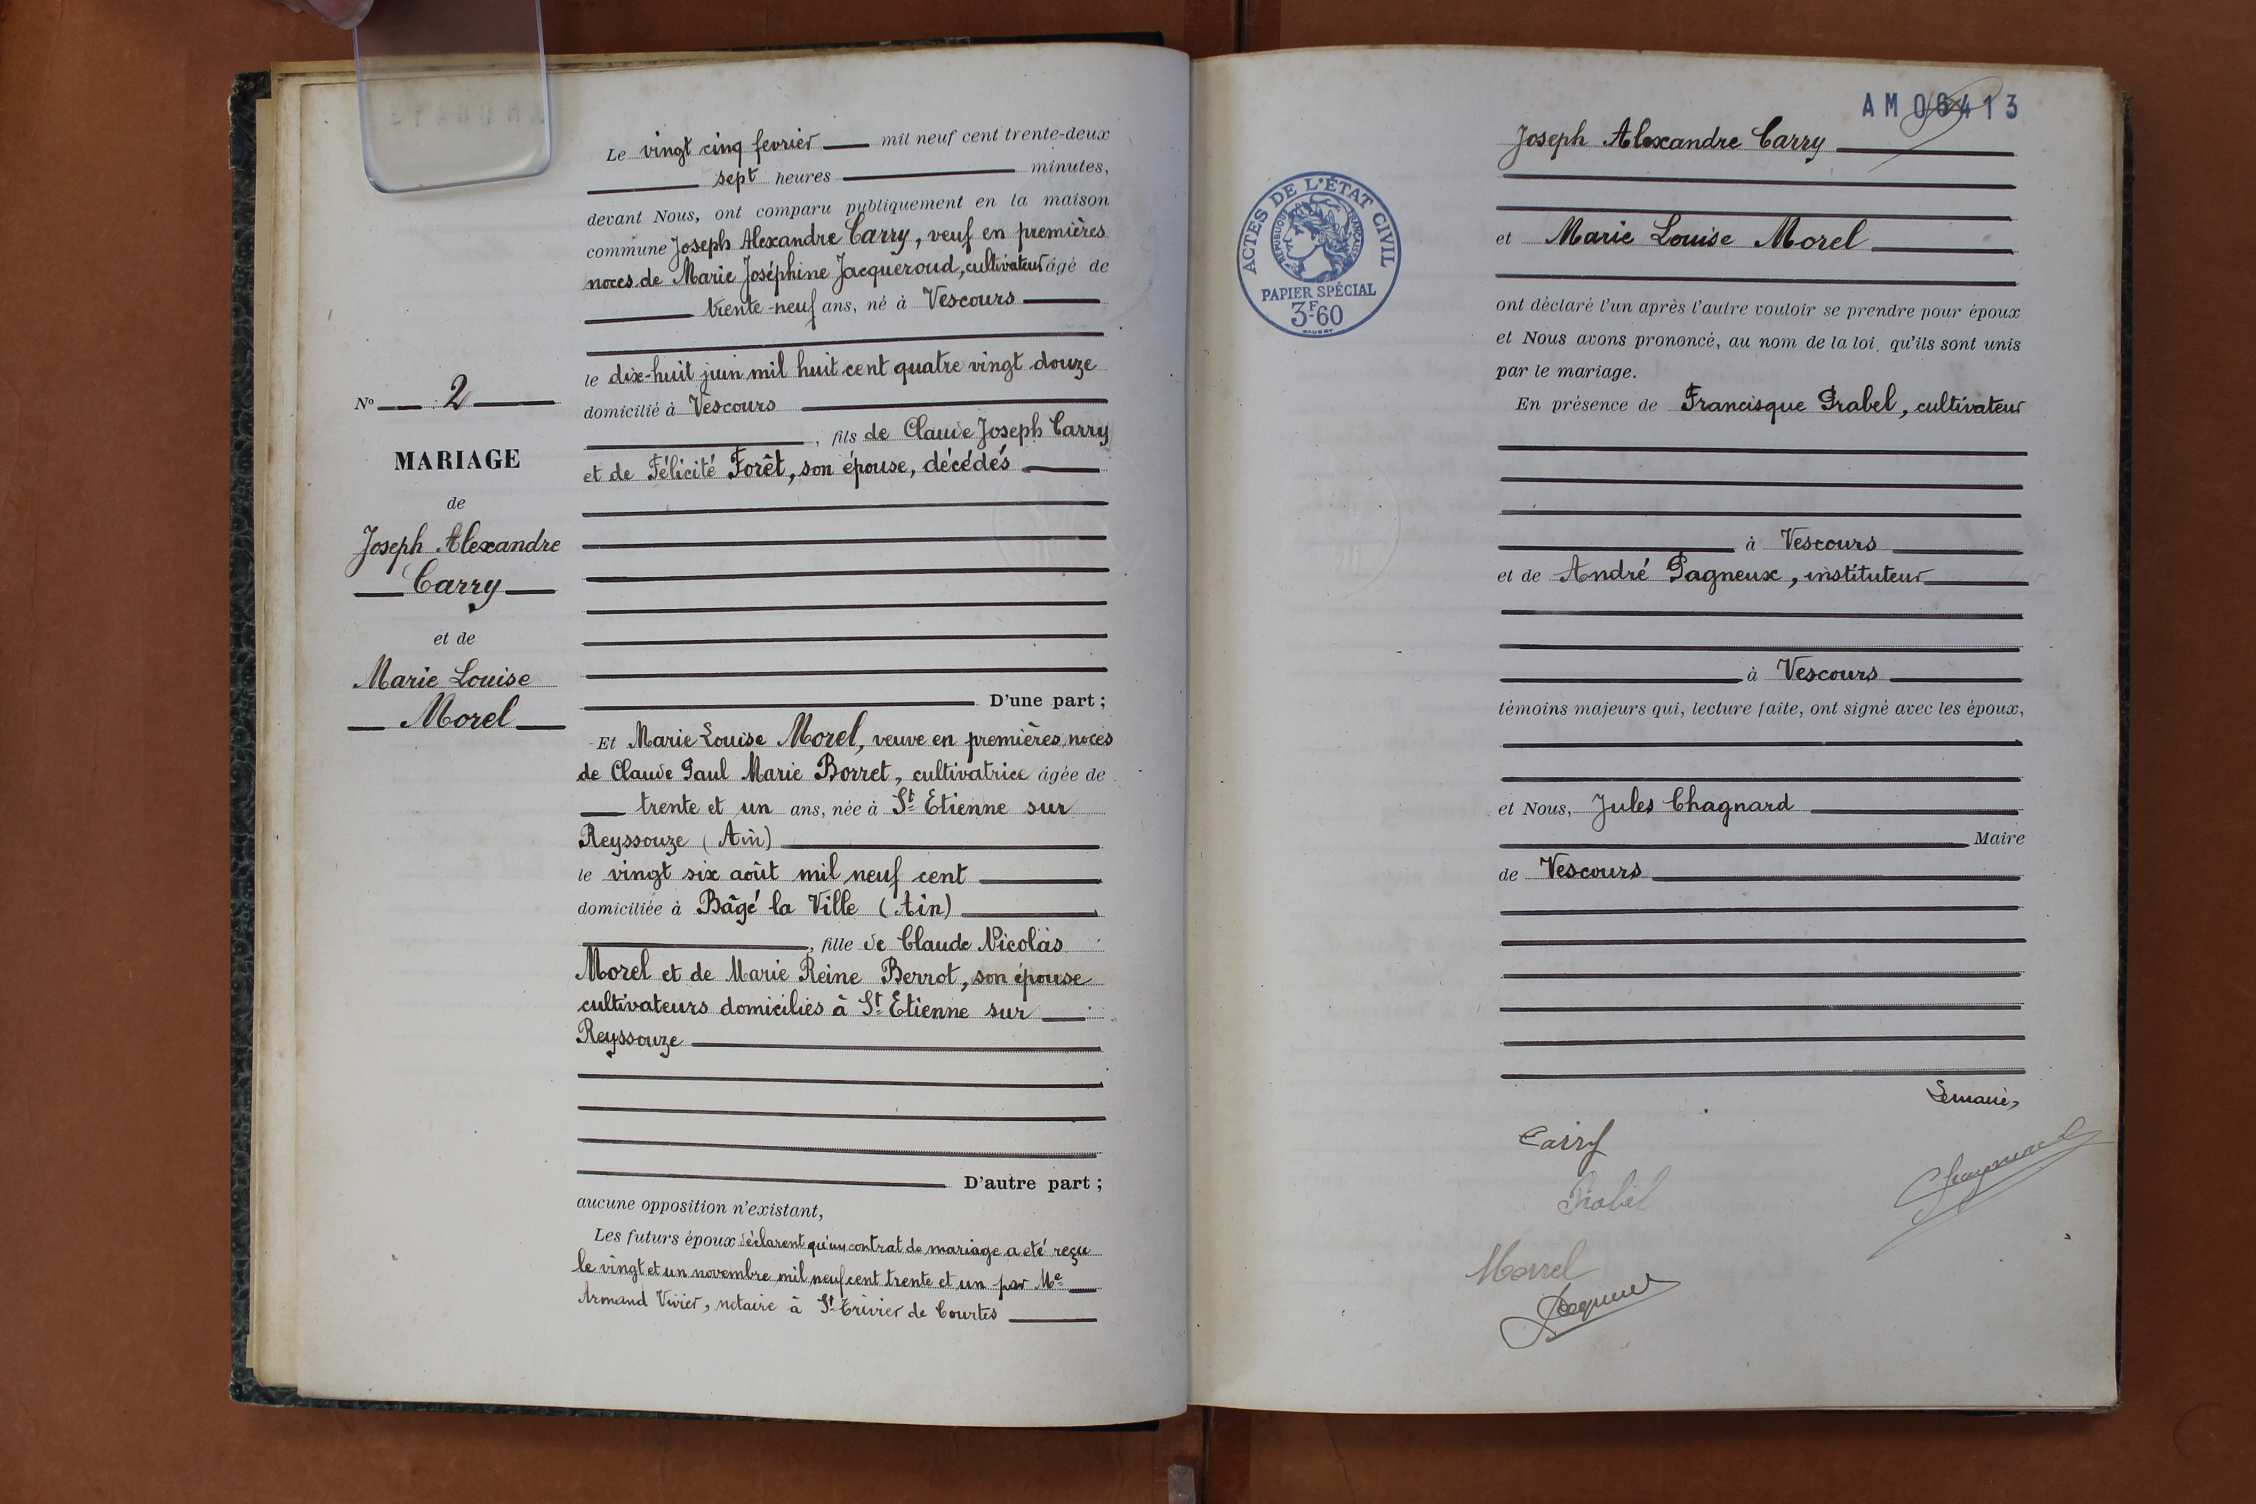 N° 2
MARIAGE
de
Joseph Alexandre
Carry
et de
Marie Louise
Morel
Le vingt cinq fevrier mil neuf cent trente-deux
sept heures minutes,
devant Nous, ont comparu publiquement en la maison
commune Joseph Alexandre Carry, veuf en premières
noces de Marie Joséphine Jacqueroud, cultivateur âgé de
trente-neuf ans, né à Vescours
le dix-huit juin mil huit cent quatre vingt douze
domicilié à Vescours
, fils de Claude Joseph Carry
et de Félicité Forêt, son épouse, décédés
D'une part ;
Et Marie Louise Morel, veuve en premières noces
de Claude Paul Marie Borret, cultivatrice âgée de
trente et un ans, née à St Etienne sur
Reyssouze (Ain)
le vingt six août mil neuf cent
domiciliée à Bâgé la Ville (Ain)
, fille de Claude Nicolas
Morel et de Marie Reine Berrot, son épouse
cultivateurs domiciliés à St Etienne sur
Reyssouze
D'autre part ;
aucune opposition n'existant,
Les futurs époux déclarent qu'un contrat de mariage a eté reçu
le vingt et un novembre mil neuf cent trente et un par Me
Armand Vivier, notaire à St Trivier de Courtes
AM 06413
Joseph Alexandre Carry
et Marie Louise Morel
ACTES DE L'ÉTAT CIVIL
RÉPUBLIQUE FRANÇAISE
PAPIER SPÉCIAL
3F-60
ont déclaré l'un après l'autre vouloir se prendre pour époux
et Nous avons prononcé, au nom de la loi, qu'ils sont unis
par le mariage.
En présence de Francisque Prabel, cultivateur
à Vescours
et de André Pagneux, instituteur
à Vescours
témoins majeurs qui, lecture faite, ont signé avec les époux,
et Nous, Jules Chagnard
Maire
de Vescours
Le maire,
Carry
Chagnard
Prabel
Morel